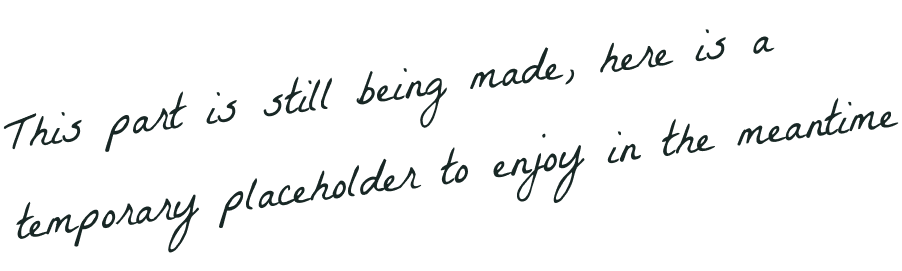 This part is still being made, here is a
temporary placeholder to enjoy in the meantime